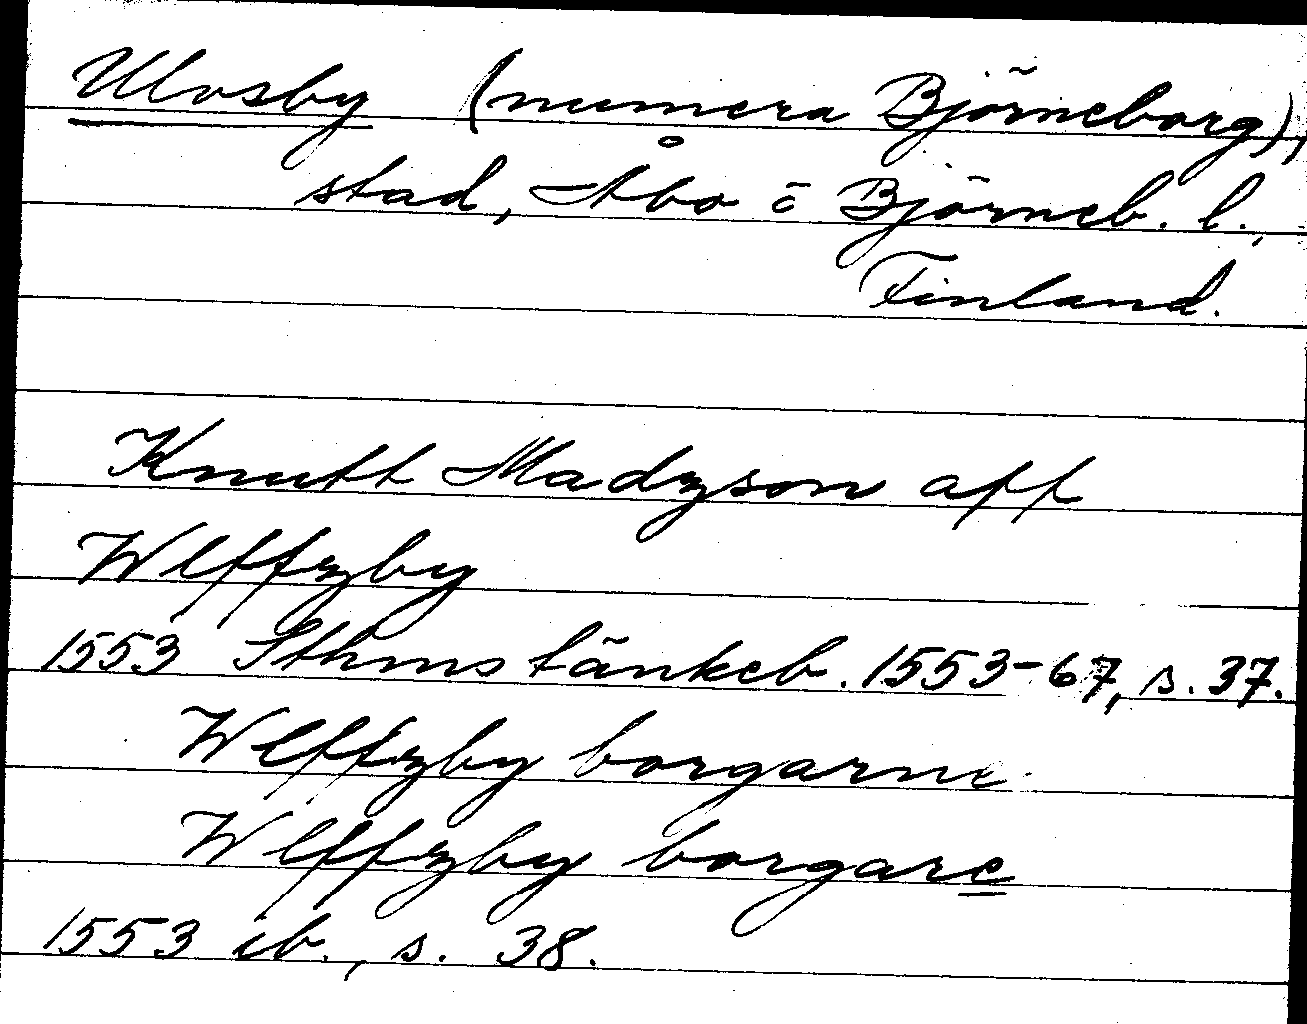 Ulvsby (numera Björneborg),
stad, Åbo o Björneb. l.,
Finland.
Knutt Madzson aff
Wlffzby
1553 Sthms tänkeb. 1553-67, s. 37.
Wlffzby borgarne
Wlffzby borgare
1553 ib., s. 38.